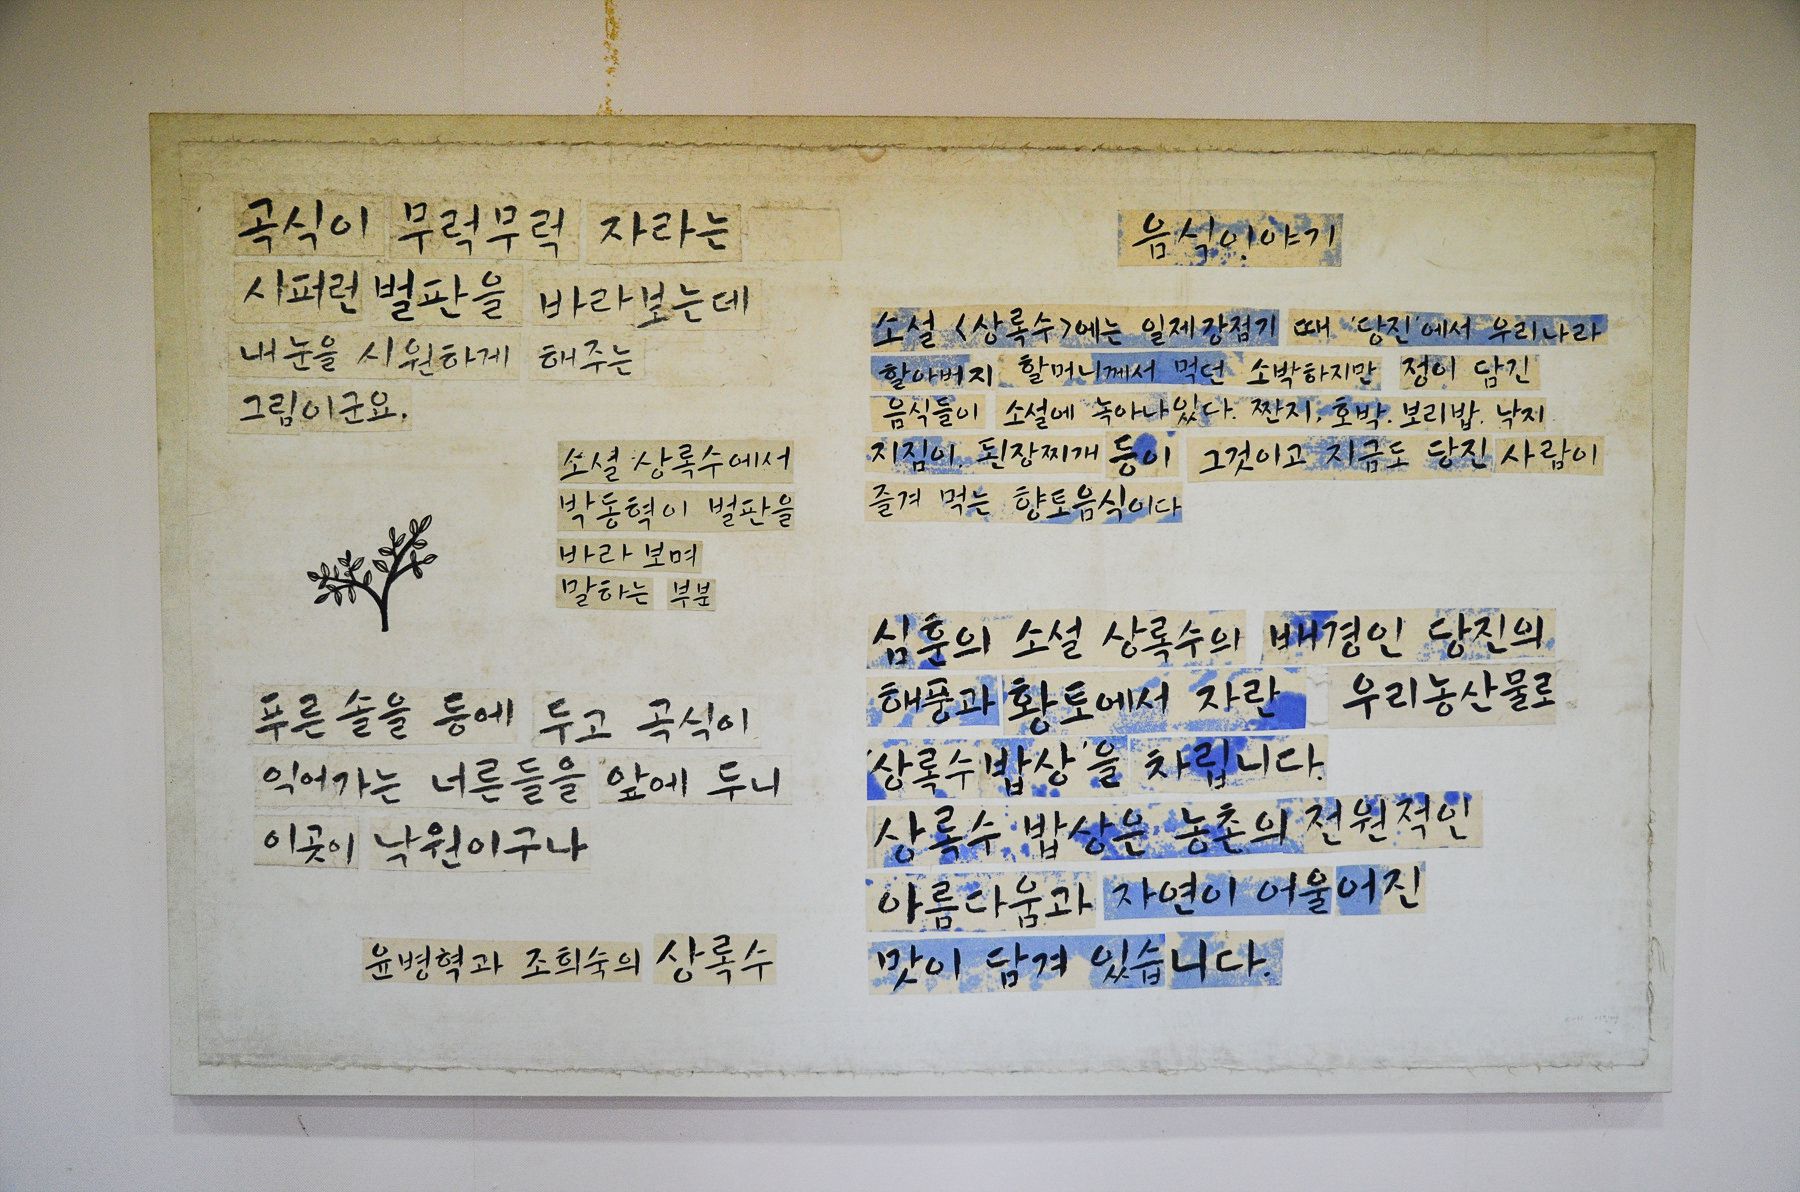 곡식이 무럭무럭 자라는
시퍼런 벌판을 바라보는데
내눈을 시원하게 해주는
그림이군요.
소설 상록수에서
박동혁이 벌판을
바라보며
말하는 부분
푸른솔을 등에 두고 곡식이
익어가는 너른들을 앞에 두니
이곳이 낙원이구나
윤병혁과 조희숙의 상록수
음식이야기
소설 <상록수>에는 일제강점기 때 '당진'에서 우리나라
할아버지 할머니께서 먹던 소박하지만 정이 담긴
음식들이 소설에 녹아나있다. 짠지, 호박. 보리밥. 낙지
지짐이. 된장찌개 등이 그것이고 지금도 당진 사람이
즐겨 먹는 향토음식이다
심훈의 소설 상록수의 배경인 당진의
해풍과 황토에서 자란 우리농산물로
'상록수 밥상'을 차립니다.
상록수 밥상은 농촌의 전원적인
아름다움과 자연이 어울어진
맛이 담겨 있습니다.